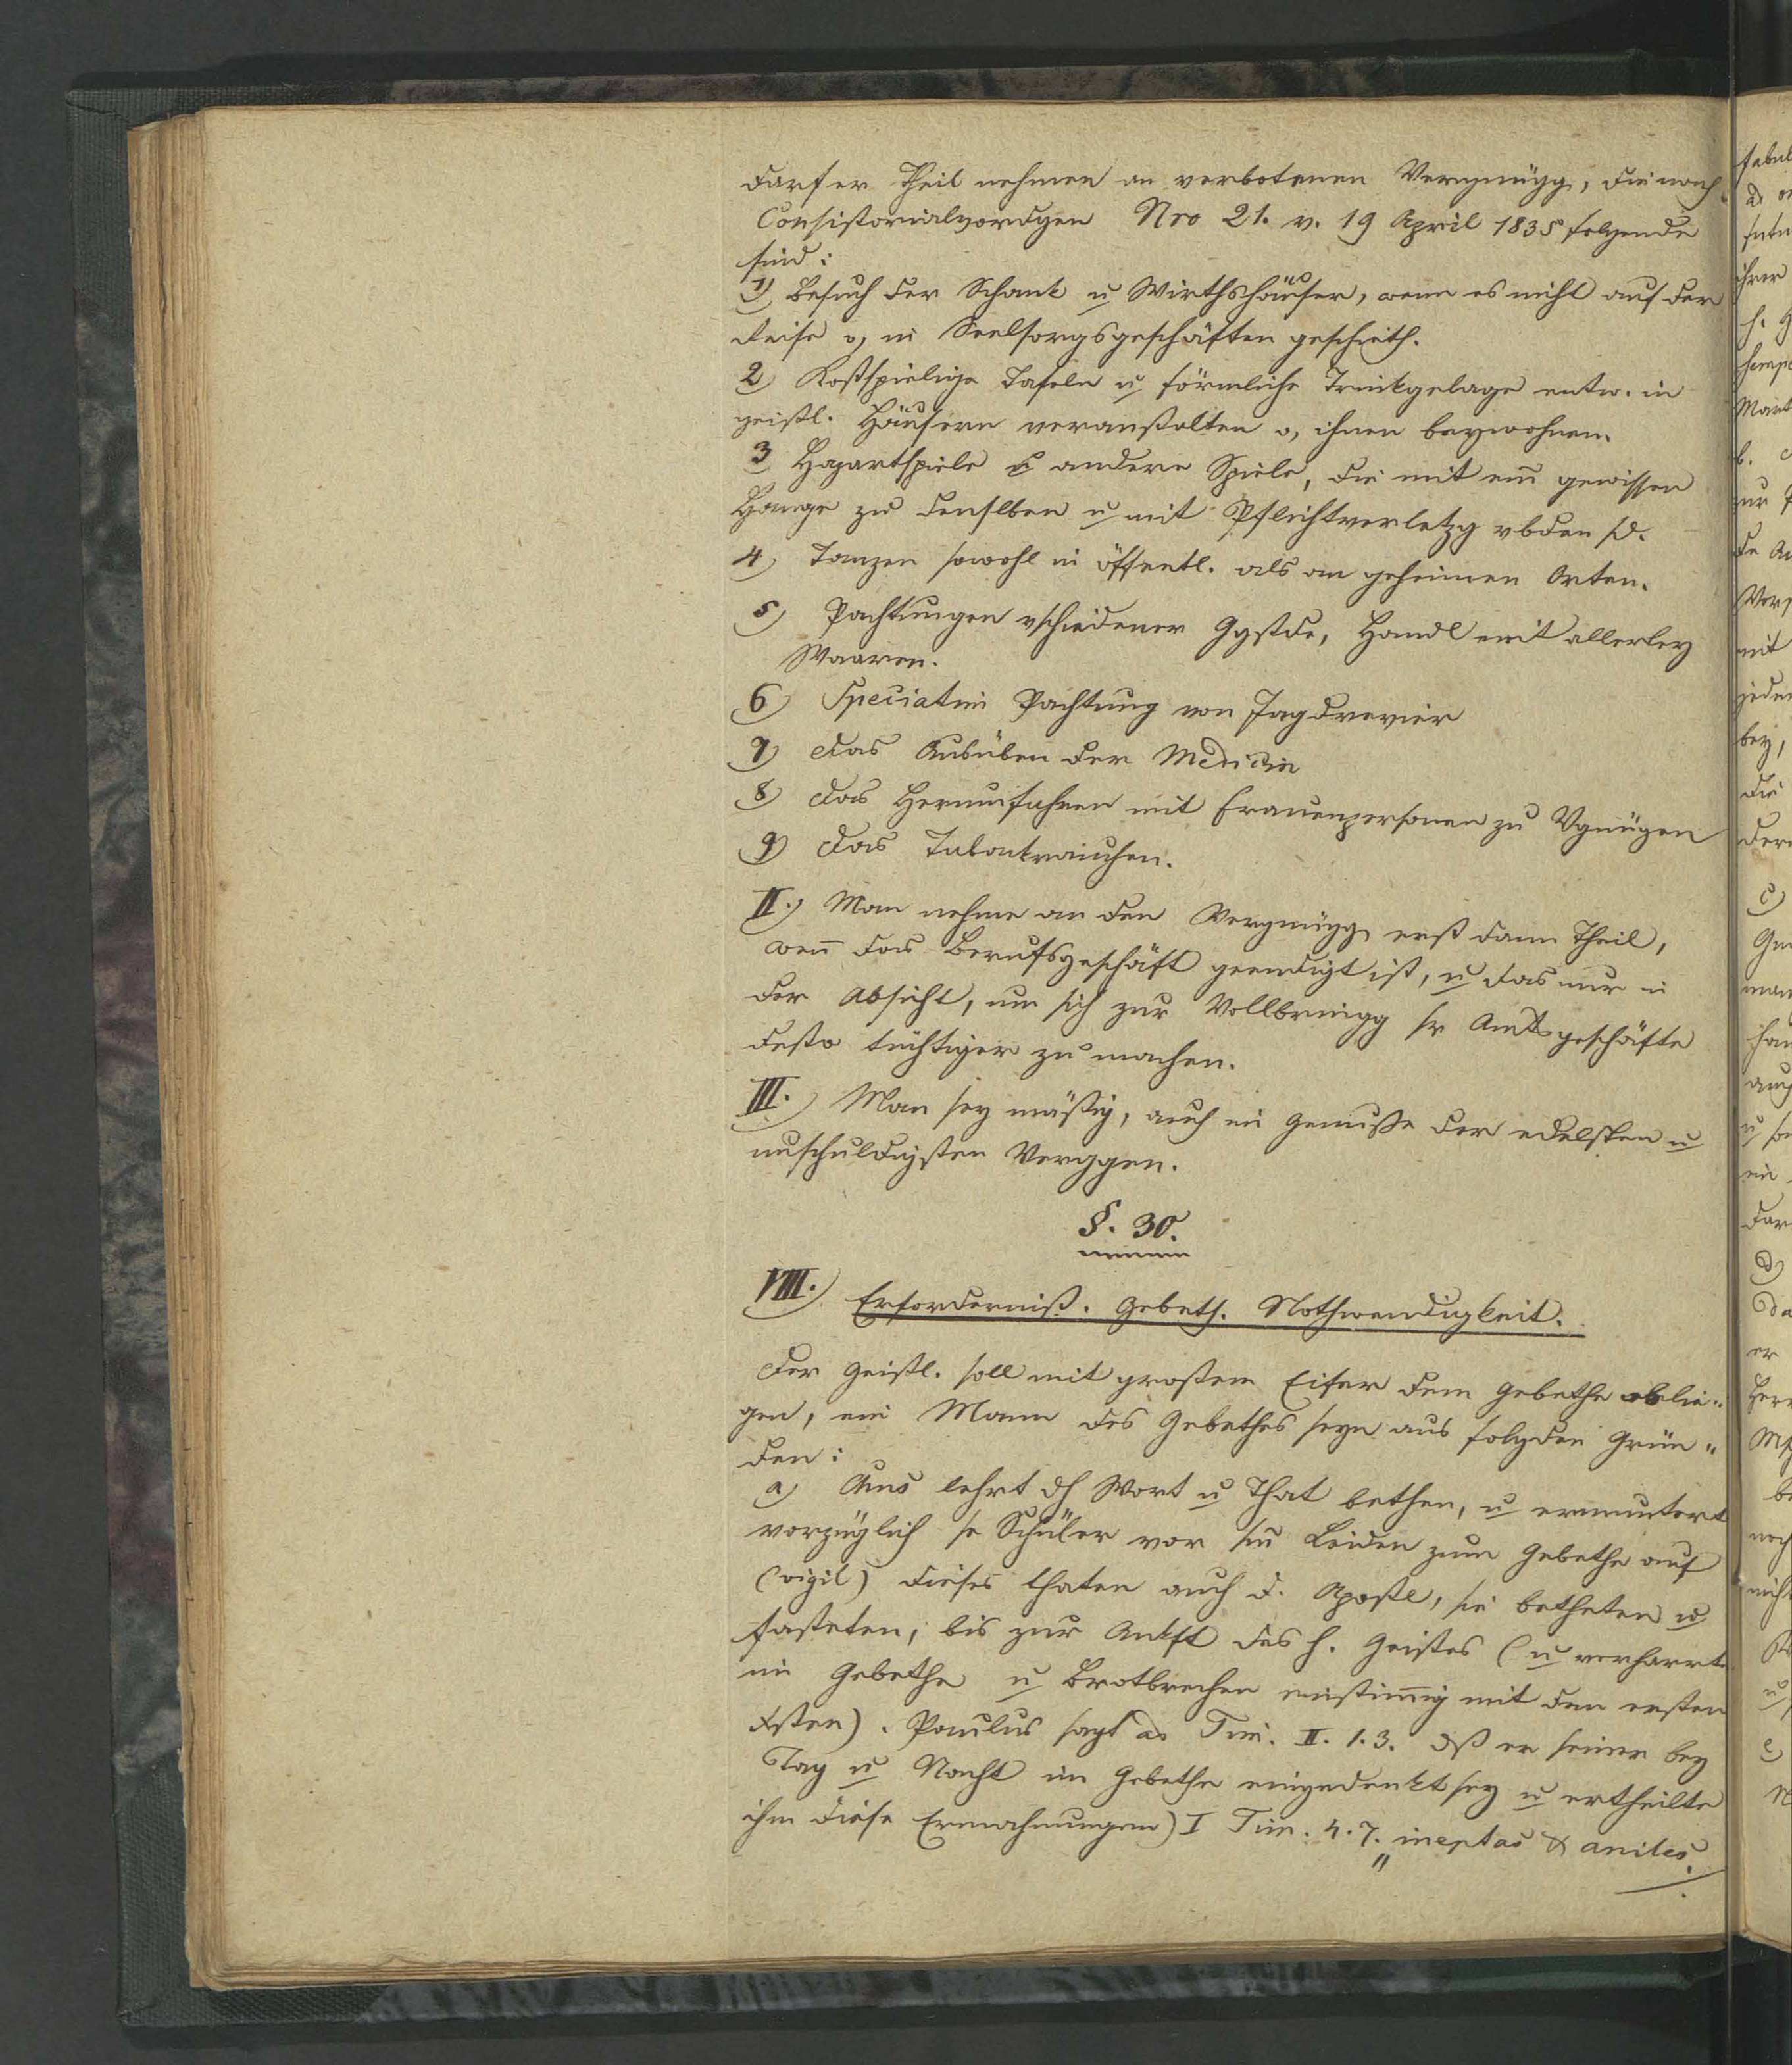 darf er Theil nehmen an verbotenen Vergnügg, die nach
Consistorialvordgen Nro 21. v. 19 April 1835 folgende
sind:
1) Besuch der Schank u Wirthshäuser, wenn es nicht auf der
Reise o, in Seelsorgsgeschäften geschieht.
2) Kostspielige Tafeln u förmliche Trinkgelage entw. in
geistl. Häusern veranstalten o, ihnen beywohnen.
3 Hazartspiele & andere Spiele, die mit ein gewissen
Hange zu denslben u mit Pflichtverletzg vbden sd.
4) Tanzen sowohl in öffentl. als an geheimen Orten.
5) Pachtungen vschiedener Ggstde, Handl mit allerley
Waaren.
6) Speciatim Pachtung von Jagdrevier
7) das Ausüben der Medicin
8) das Herumfahren mit Frauenpersonen zu Vgnügen
9) das Tabakrauchen.
II.) Man nehme an den Vergnügg erst dann Theil,
wen das Berufsgeschäft geendigt ist, u das nur in
der Absicht, um sich zur Vollbringg sr Amtsgeschäfte
desto tüchtiger zu machen.
III.) Man sey mäßig, auch im Genuße der edelsten u
unschuldigsten Verggen.
§. 30.
VIII.) Erforderniß. Gebeth. Nothwendigkeit.
Der Geistl. soll mit großem Eifer dem Gebethe oblie¬
gen, ein Mann des Gebethes seyn aus folgden Grün¬
den:
a) lehrt dh Wort u That bethen, u ermuntert
vorzüglich se Schüler vor sm Leiden zum Gebethe auf
(vigil) dieses thaten auch d. Apostl, sie betheten u
fasteten, bis zur Ankft des h. Geistes (u verharrt
im Gebethe u Brotbrechen einstimmig mit den ersten
Xsten). Paulus sagt ad Tim. II. 1.3. dß er seiner bey
Tag u Nacht im Gebethe eingedenkt sey u ertheilte
ihm diese Ermahnungen) I Tim. 4.7. „ineptas & aniles